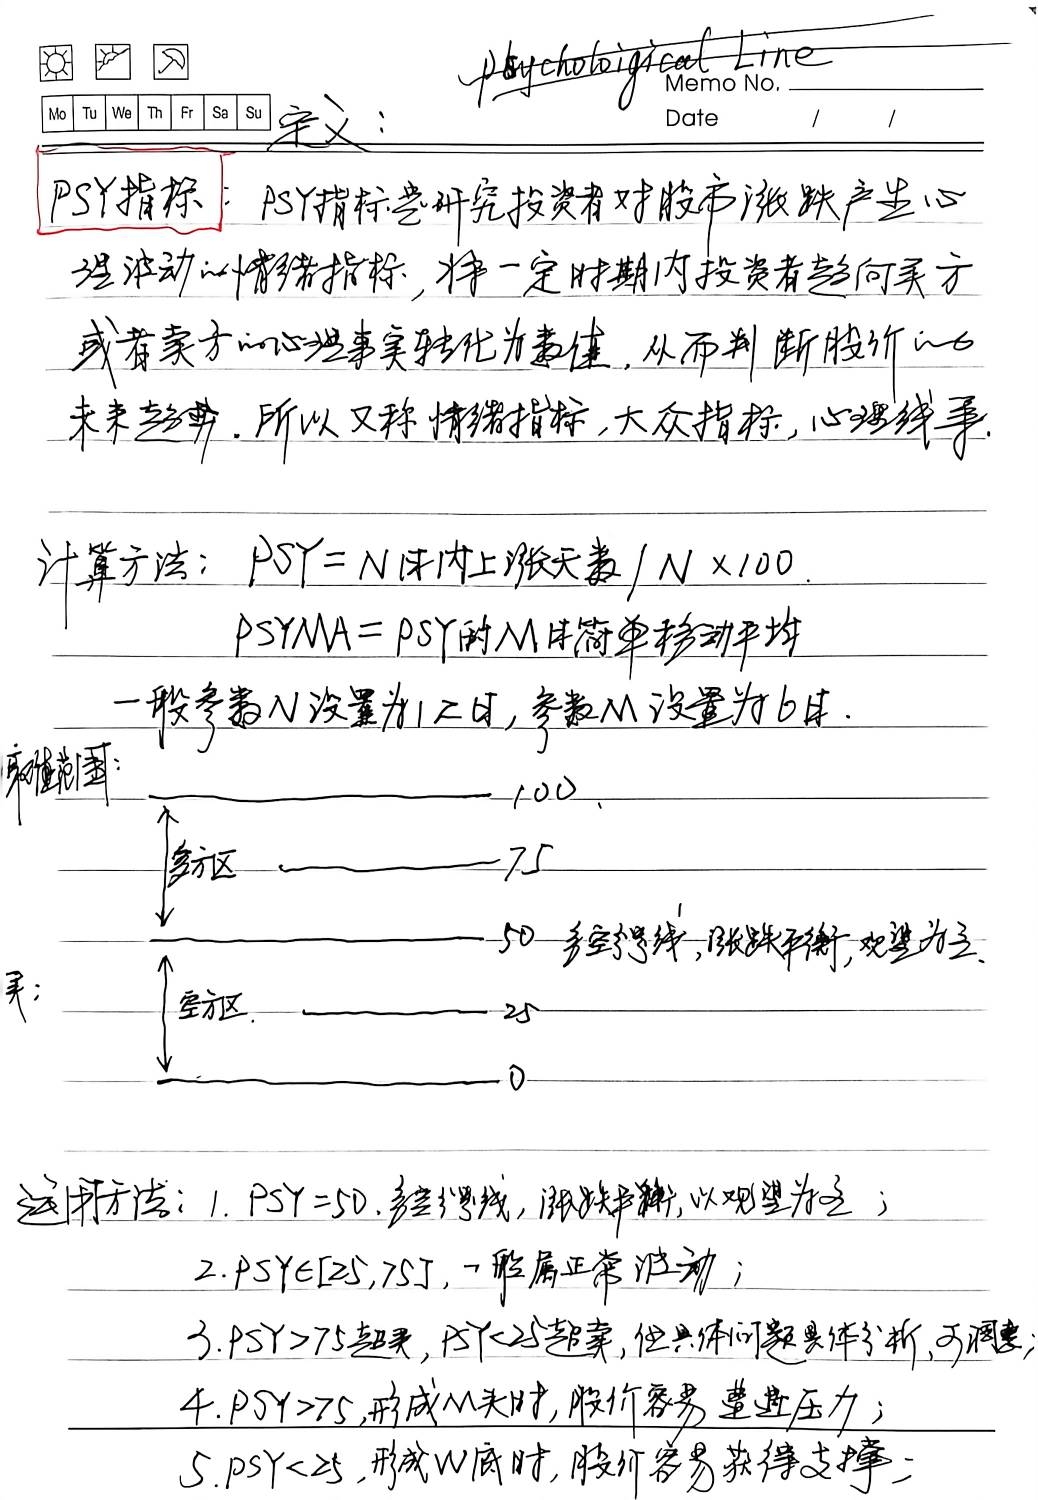 Psychological Line
Memo No.
Mo Tu We Th Fr Sa Su
Date / /
定义：
PSY指标：PSY指标是研究投资者对股市涨跌产生心
理波动的情绪指标，将一定时期内投资者趋向买方
或者卖方的心理事实转化为数值，从而判断股价的
未来趋势。所以又称情绪指标，大众指标，心理线等.
计算方法：PSY=N日内上涨天数/N×100.
PSYMA=PSY的M日简单移动平均
一般参数N设置为12日，参数M设置为6日.
取值范围：
100
多方区 75
50 多空分界线，涨跌平衡，观望为主.
买；
空方区. 25
0
运用方法：1. PSY=50.多空分界线，涨跌平衡，以观望为主；
2.PSY∈[25,75]，一般属正常波动；
3.PSY>75超买，PSY<25超卖，但具体问题具体分析，可调整；
4.PSY>75,形成M头时，股价容易遭遇压力；
5.PSY<25,形成W底时，股价容易获得支撑；